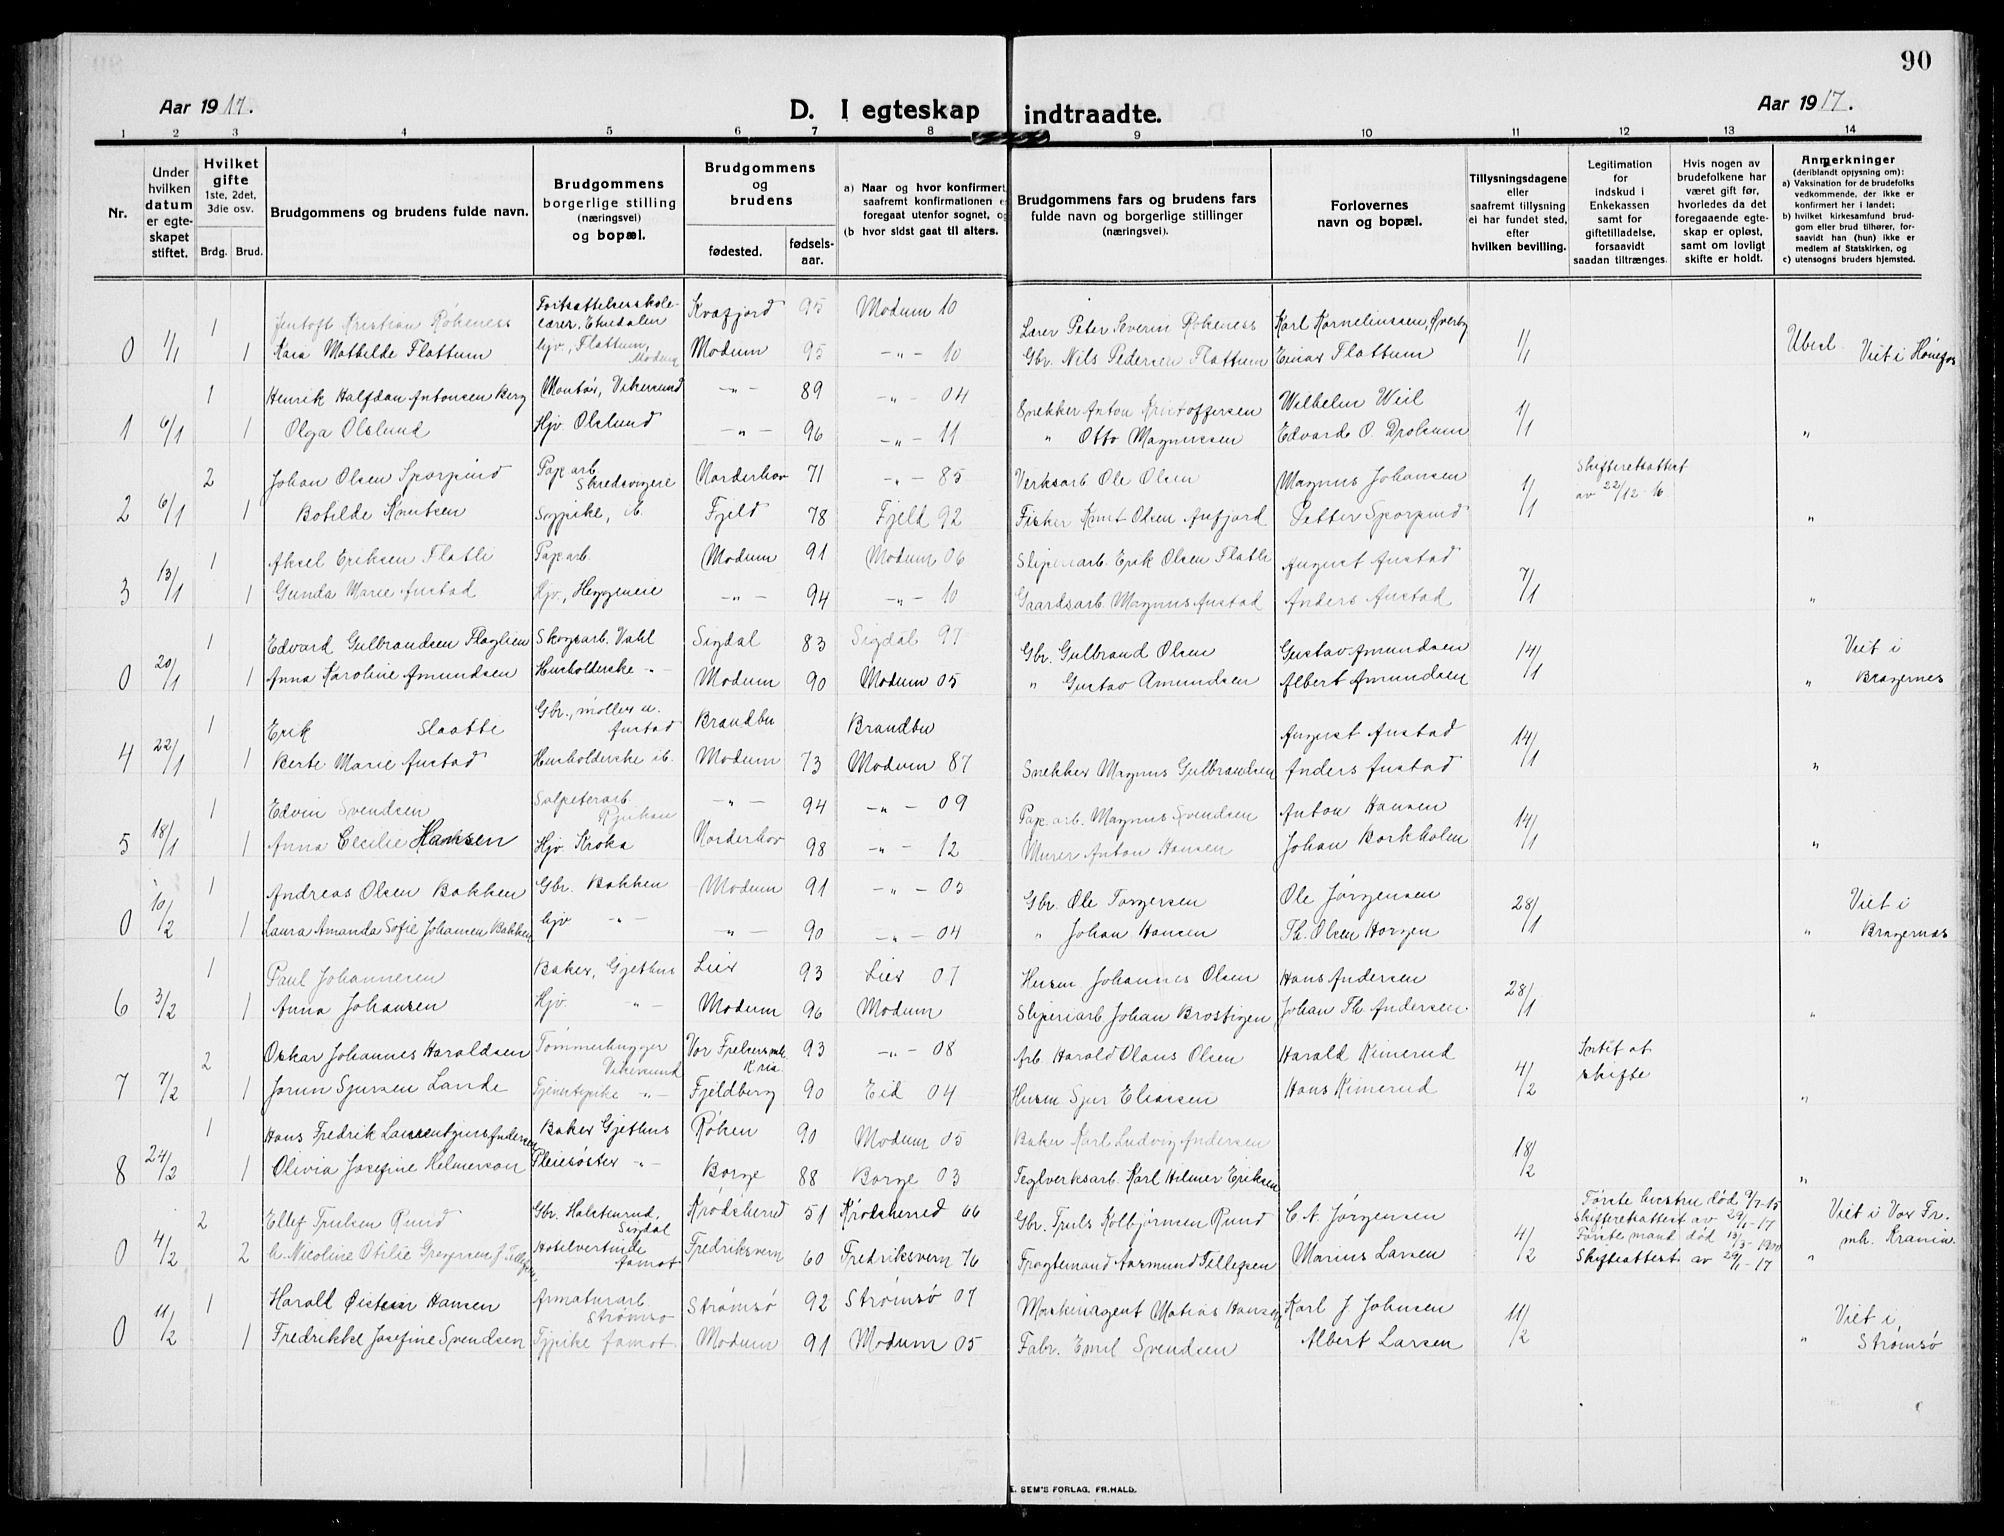 90
Aar 1917.
D. I egteskap indtraadte.
Aar 1917.
1 2 3 4 5 6 7 8 9 10 11 12 13 14
Nr.
Under hvilken datum er egteskapet stiftet.
Hvilket gifte
1ste, 2det, 3die osv.
Brdg. Brud.
Brudgommens og brudens fulde navn.
Brudgommens borgerlige stilling (næringsvei) og bopæl.
Brudgommens og brudens
fødested.
fødselsaar.
a) Naar og hvor konfirmert, saafremt konfirmationen er foregaat utenfor sognet, og
(b hvor sidst gaat til alters.
Brudgommens fars og brudens fars fulde navn og borgerlige stillinger (næringsvei).
Forlovernes navn og bopæl.
Tillysningsdagene eller saafremt tillysning ei har fundet sted, efter hvilken bevilling.
Legitimation for indskud i Enkekassen samt for giftetilladelse, forsaavidt saadan tiltrænges.
Hvis nogen av brudefolkene har været gift før, hvorledes da det foregaaende egteskap er opløst, samt om lovligt skifte er holdt.
Anmerkninger
(deriblandt opjysning om):
a) Vaksination for de brudefolks vedkommende, der ikke er konfirmert her i landet;
b) hvilket kirkesamfund brudgom eller brud tilhører, forsaavidt han (hun) ikke er medlem af Statskirken, og
c) utensogns bruders hjemsted.
1 Jentoft Kristian Rökeness Fortsættelsesskolelærer, Etnedalen Kvæfjord 95 Modum 10 Lærer Peter Severin Rökeness Karl Korneliussen, Øverby
0 1/1 1 Kara Mathilde Flattum hjv, Flattum, Modum Modum 95 -"- 10 Gbr. Nils Pedersen Flattum Einar Flattum 1/1 Ubesl. Viet i Hønefos
1 Henrik Halfdan Antonsen Berg Montör, Vikersund -"- 89 -"- 04 Snekker Anton Kristoffersen Wilhelm Weil
1 6/1 1 Olga Olslund Hjv Olslund -"- 96 -"- 11 " Otto Magnussen Edvard O. Drolsum 1/1 "
2 Johan Olsen Sporpind Pap.arb. Skredsvigeie Norderhov 71 -"- 85 Verksarb Ole Olsen Magnus Johansen Skifteretsattest av 22/12-16
2 6/1 1 Botilde Knutsen Sypike, ib. Fjeld 78 Fjeld 92 Fisker Knut Olsen Aufjord Petter Sporpind 1/1 "
1 Aksel Eriksen Flatli Pap.arb. Modum 91 Modum 06 Sliperiarb. Erik Olsen Flatli August Anstad
3 13/1 1 Gunda Marie Anstad Hjv, Heggeneie -"- 94 -"- 10 Gaardsarb. Magnus Anstad Anders Anstad 7/1 "
1 Edvard Gulbrandsen Flaglien Skogsarb. Vahl Sigdal 83 Sigdal 97 Gbr. Gulbrand Olsen Gustav Amundsen Viet i
0 20/1 1 Anna Karoline Amundsen Husholderske -"- Modum 90 Modum 05 " Gustav Amundsen Albert Amundsen 14/1 " Bragernes
1 Erik Slaatte Gbr., möller u. Anstad Brandbu Brandbu August Anstad
4 22/1 1 Berte Marie Anstad Husholderske ib. Modum 73 Modum 87 Snekker Magnus Gulbrandsen Anders Anstad 14/1 "
1 Edvin Svendsen Salpeterarb. Rjukan -"- 94 -"- 09 Pap.arb. Magnus Svendsen Anton Hansen
5 18/1 1 Anna Cecilie Hansen Hjv. Kroka Norderhov 98 -"- 12 Murer Anton Hansen Johan Borkholm 14/1 "
1 Andreas Olsen Bakken Gbr. Bakken Modum 91 -"- 05 Gbr. Ole Torgersen Ole Jørgensen Viet i
0 10/2 1 Laura Amanda Sofie Johansen Bakken hjv -"- -"- 90 -"- 04 " Johan Hansen Th. Olsen Horgen 28/1 " Bragernes
1 Paul Johannesen Baker, Gjethus Lier 93 Lier 07 Husm Johannes Olsen Hans Andersen
6 3/2 1 Anna Johansen Hjv. -"- Modum 96 Modum Sliperiarb Johan Brostigen Johan Th. Andersen 28/1 "
2 Oskar Johannes Haraldsen Tömmerhugger Vikersund Vor Frelsers mh. Kria. 93 -"- 08 Arb. Harald Olaus Olsen Harald Kimerud Intet at skifte
7 7/2 1 Jorun Sjursen Lande Tjenestepike -"- Fjeldberg 90 Eid 04 Husm Sjur Eliassen Hans Kimerud 4/2 "
1 Hans Fredrik Laurentzius Andersen Baker Gjethus Röken 90 Modum 05 Baker Karl Ludvig Andersen
8 24/2 1 Olivia Josefine Helmersen Pleiesöster -"- Borge 88 Borge 03 Teglverksarb. Karl Hilmer Eriksen 18/2 "
2 Ellef Trulsen Rund Gbr. Halstenrud, Sigdal Krödsherred 51 Krödsherred 66 Gbr. Truls Kolbjørnsen Rund C. A. Jørgensen Første hustru død 9/7-15 Skifteretsattest av 29/1-17 Viet i Vor Fr.
0 4/2 2 Nicoline Otilie Gregersen f. Tellefsen Hotelvertinde Famot Fredriksvern 60 Fredriksvern 76 Fragtemand Aasmund Tellefsen Marius Larsen 4/2 Første mand død 13/3-1900 Skifteattest av 29/1-17 " mh. Krania.
1 Harald Øistein Hansen Armaturarb Strømsø Strømsø 92 Strømsø 07 Maskinagent Matias Hansen Karl J Johnsen Viet i
0 11/2 1 Fredrikke Josefine Svendsen Tjpike Famot Modum 91 Modum 05 Fabr. Emil Svendsen Albert Larsen 11/2 " Strømsø
E. SEM'S FORLAG, FR.HALD.